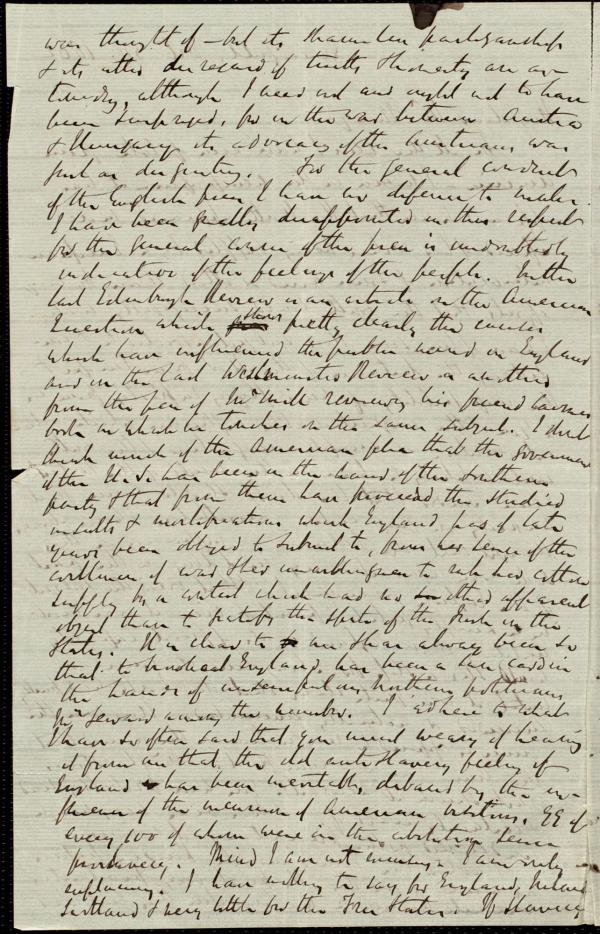 was thought of — but its shameless partizanship
& its utter disregard of truth & honesty are as-
tounding, although I need not and ought not to have
been surprised, for in the war between Austria
& Hungary its advocacy of the Austrians was
just as disgusting. For the general conduct
of the English press I have no defence to make.
I have been greatly disappointed in this respect
for the general course of the press is undoubtedly
indicative of the feelings of the people. In the
last Edinburgh Review is an article on the American
Question which shows pretty clearly the causes
which have influenced the public mind in England
and in the last Westminster Review is another
from the pen of Mr Mill reviewing his friend Cairnes
book in which he touches on the same subject. I don't
think much of the American plea that the government
of the U.S. has been in the hands of the Southern
party & that from them have proceeded the studied
insults & mortifications which England has of late
years been obliged to submit to, from her sense of the
wickedness of war & her unwillingness to risk her cotton
supply by a contest which had no other apparent
object than to satisfy the spite of the Irish in the
States. It is clear to me & has always been so
that to bamboozle England has been a card in
the hands of unscrupulous Northern politicians
Mr Seward among the number. I adhere to what
I have so often said that you must weary of hearing
it from me that the old anti slavery feeling of
England has been inevitably debased by the in-
fluence of the incursion of American visitors, 99 of
every 100 of whom were in the abolition sense
proslavery. Mind I am not excusing I am only
explaining. I have nothing to say for England, Ireland
Scotland & very little for the Free States. If Slavery